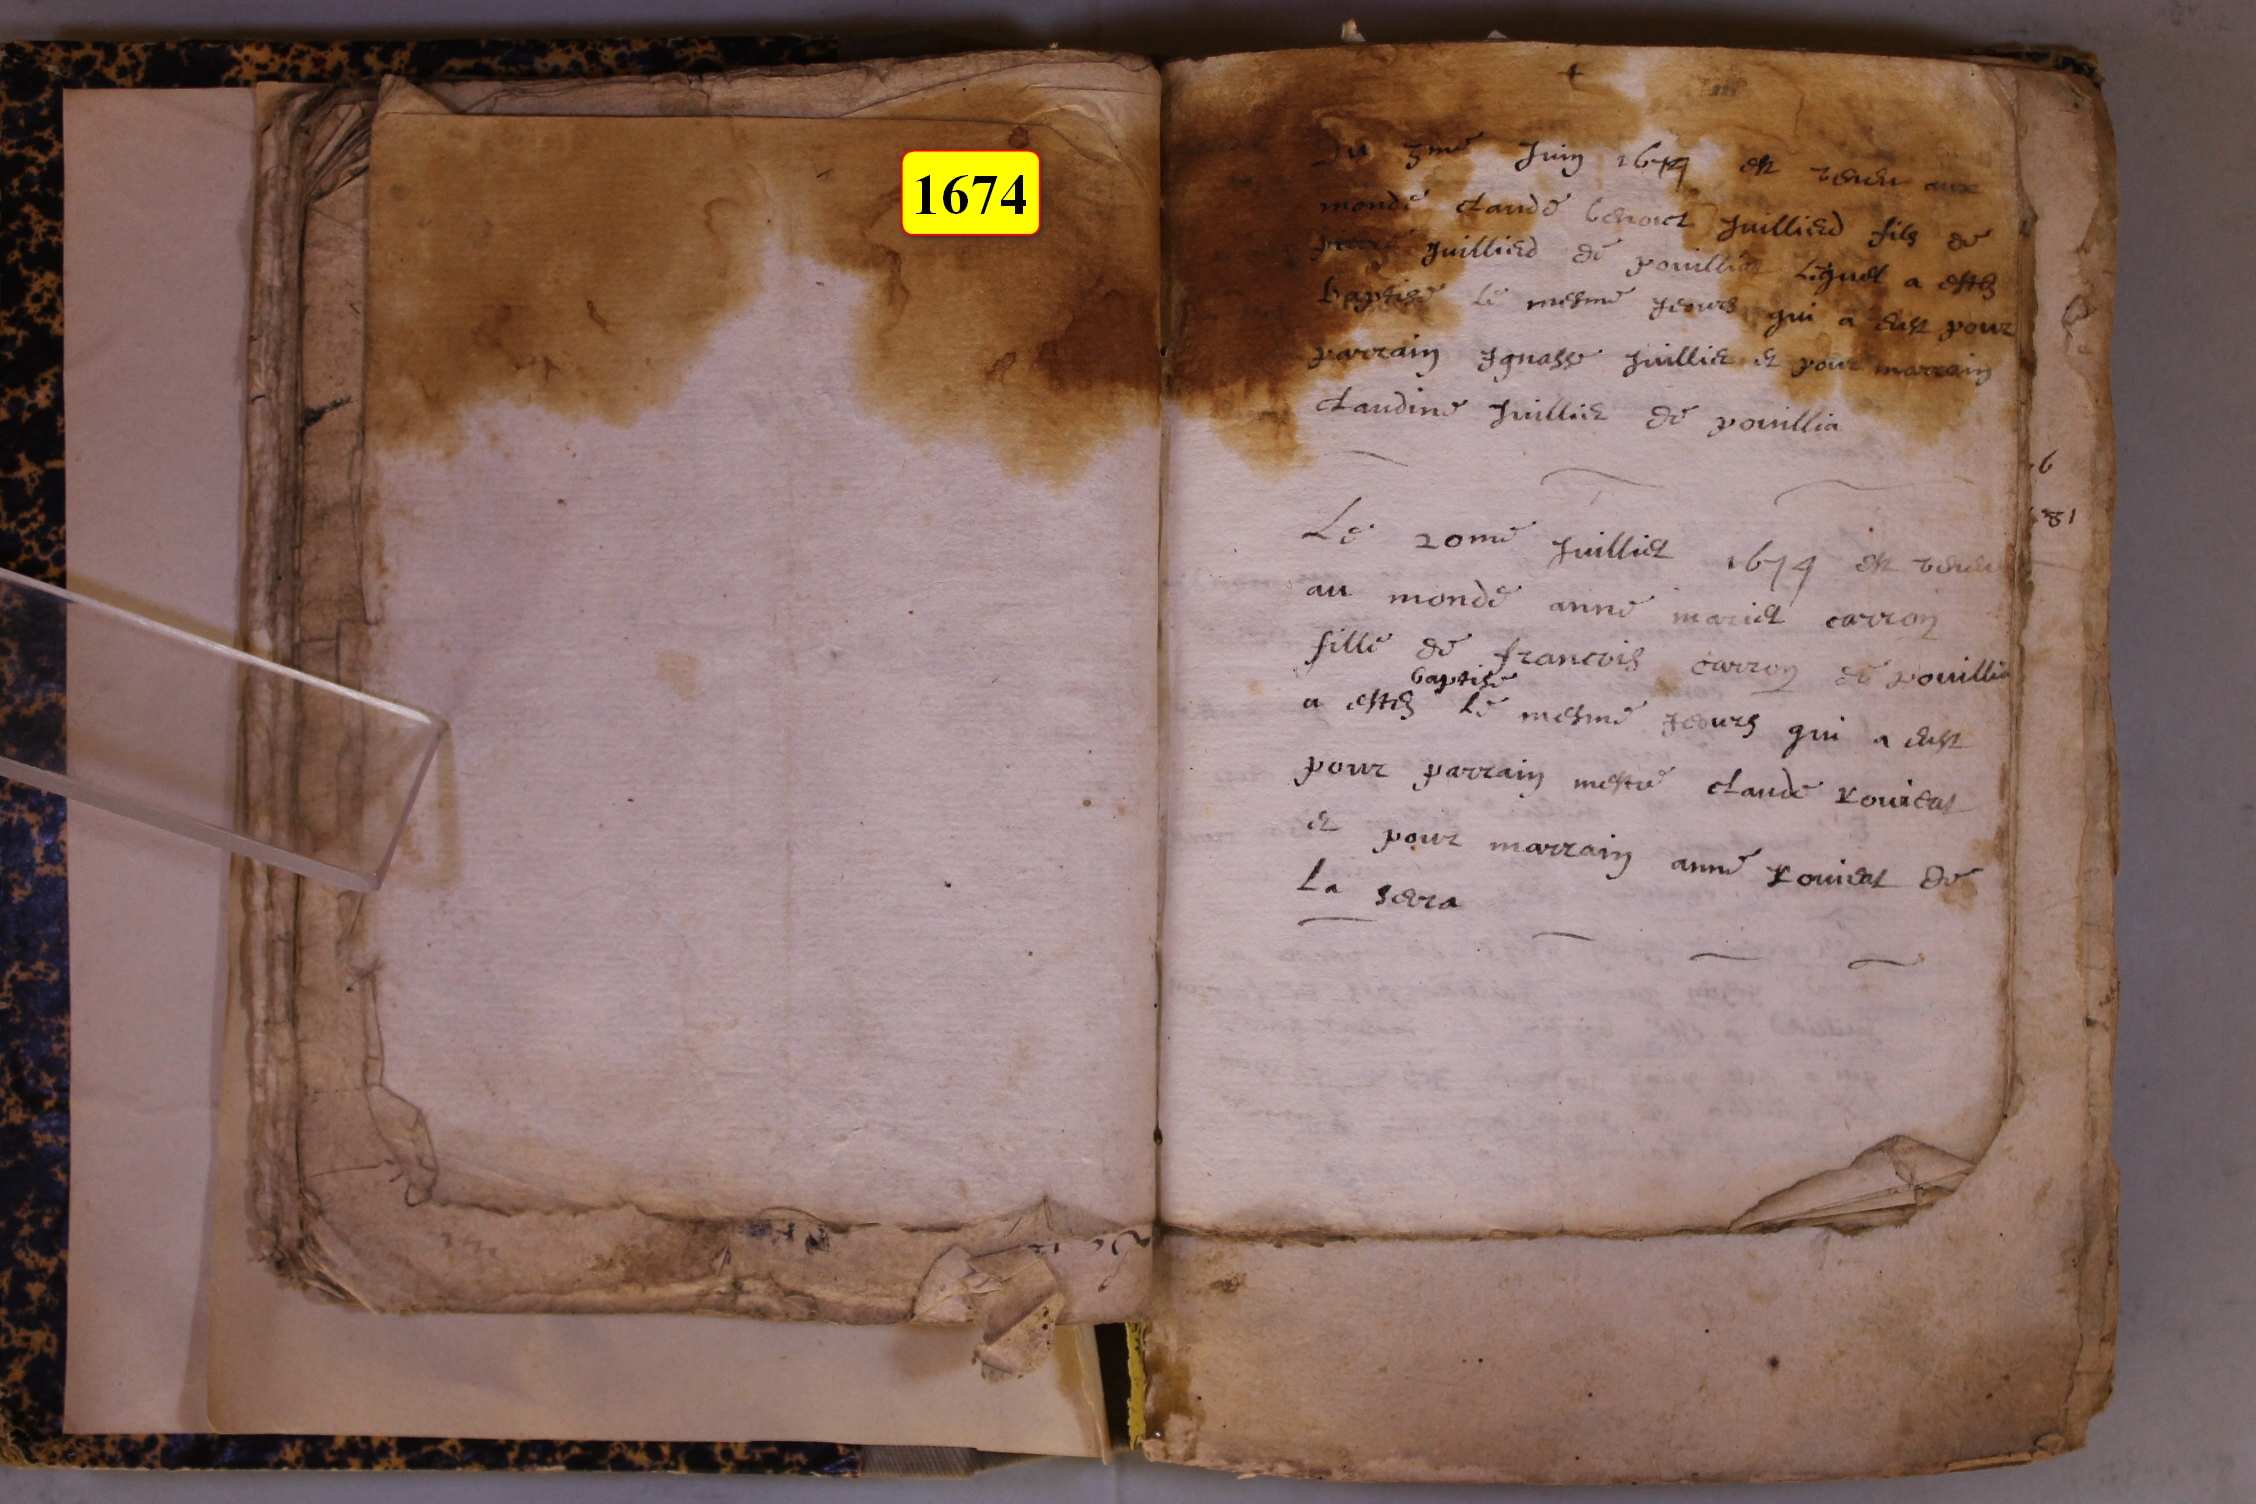 1674
Du 3me Juin 1674 est venu aux
monde claude benoict Juilliard fils de
pierre Juilliard de pouillia Lequel a estez
baptise le mesme jeours qui a eust pour
parrain Jgnasse Juilliet et pour marrain
claudine Juilliet de pouillia
Le 20me Juilliet 1674 est venu
au monde anne mariet carron
fille de francois carron de pouillia
baptise
a estez Le mesme jeours qui a eust
pour parrain mestre claude
et pour marrain anne de
La serra